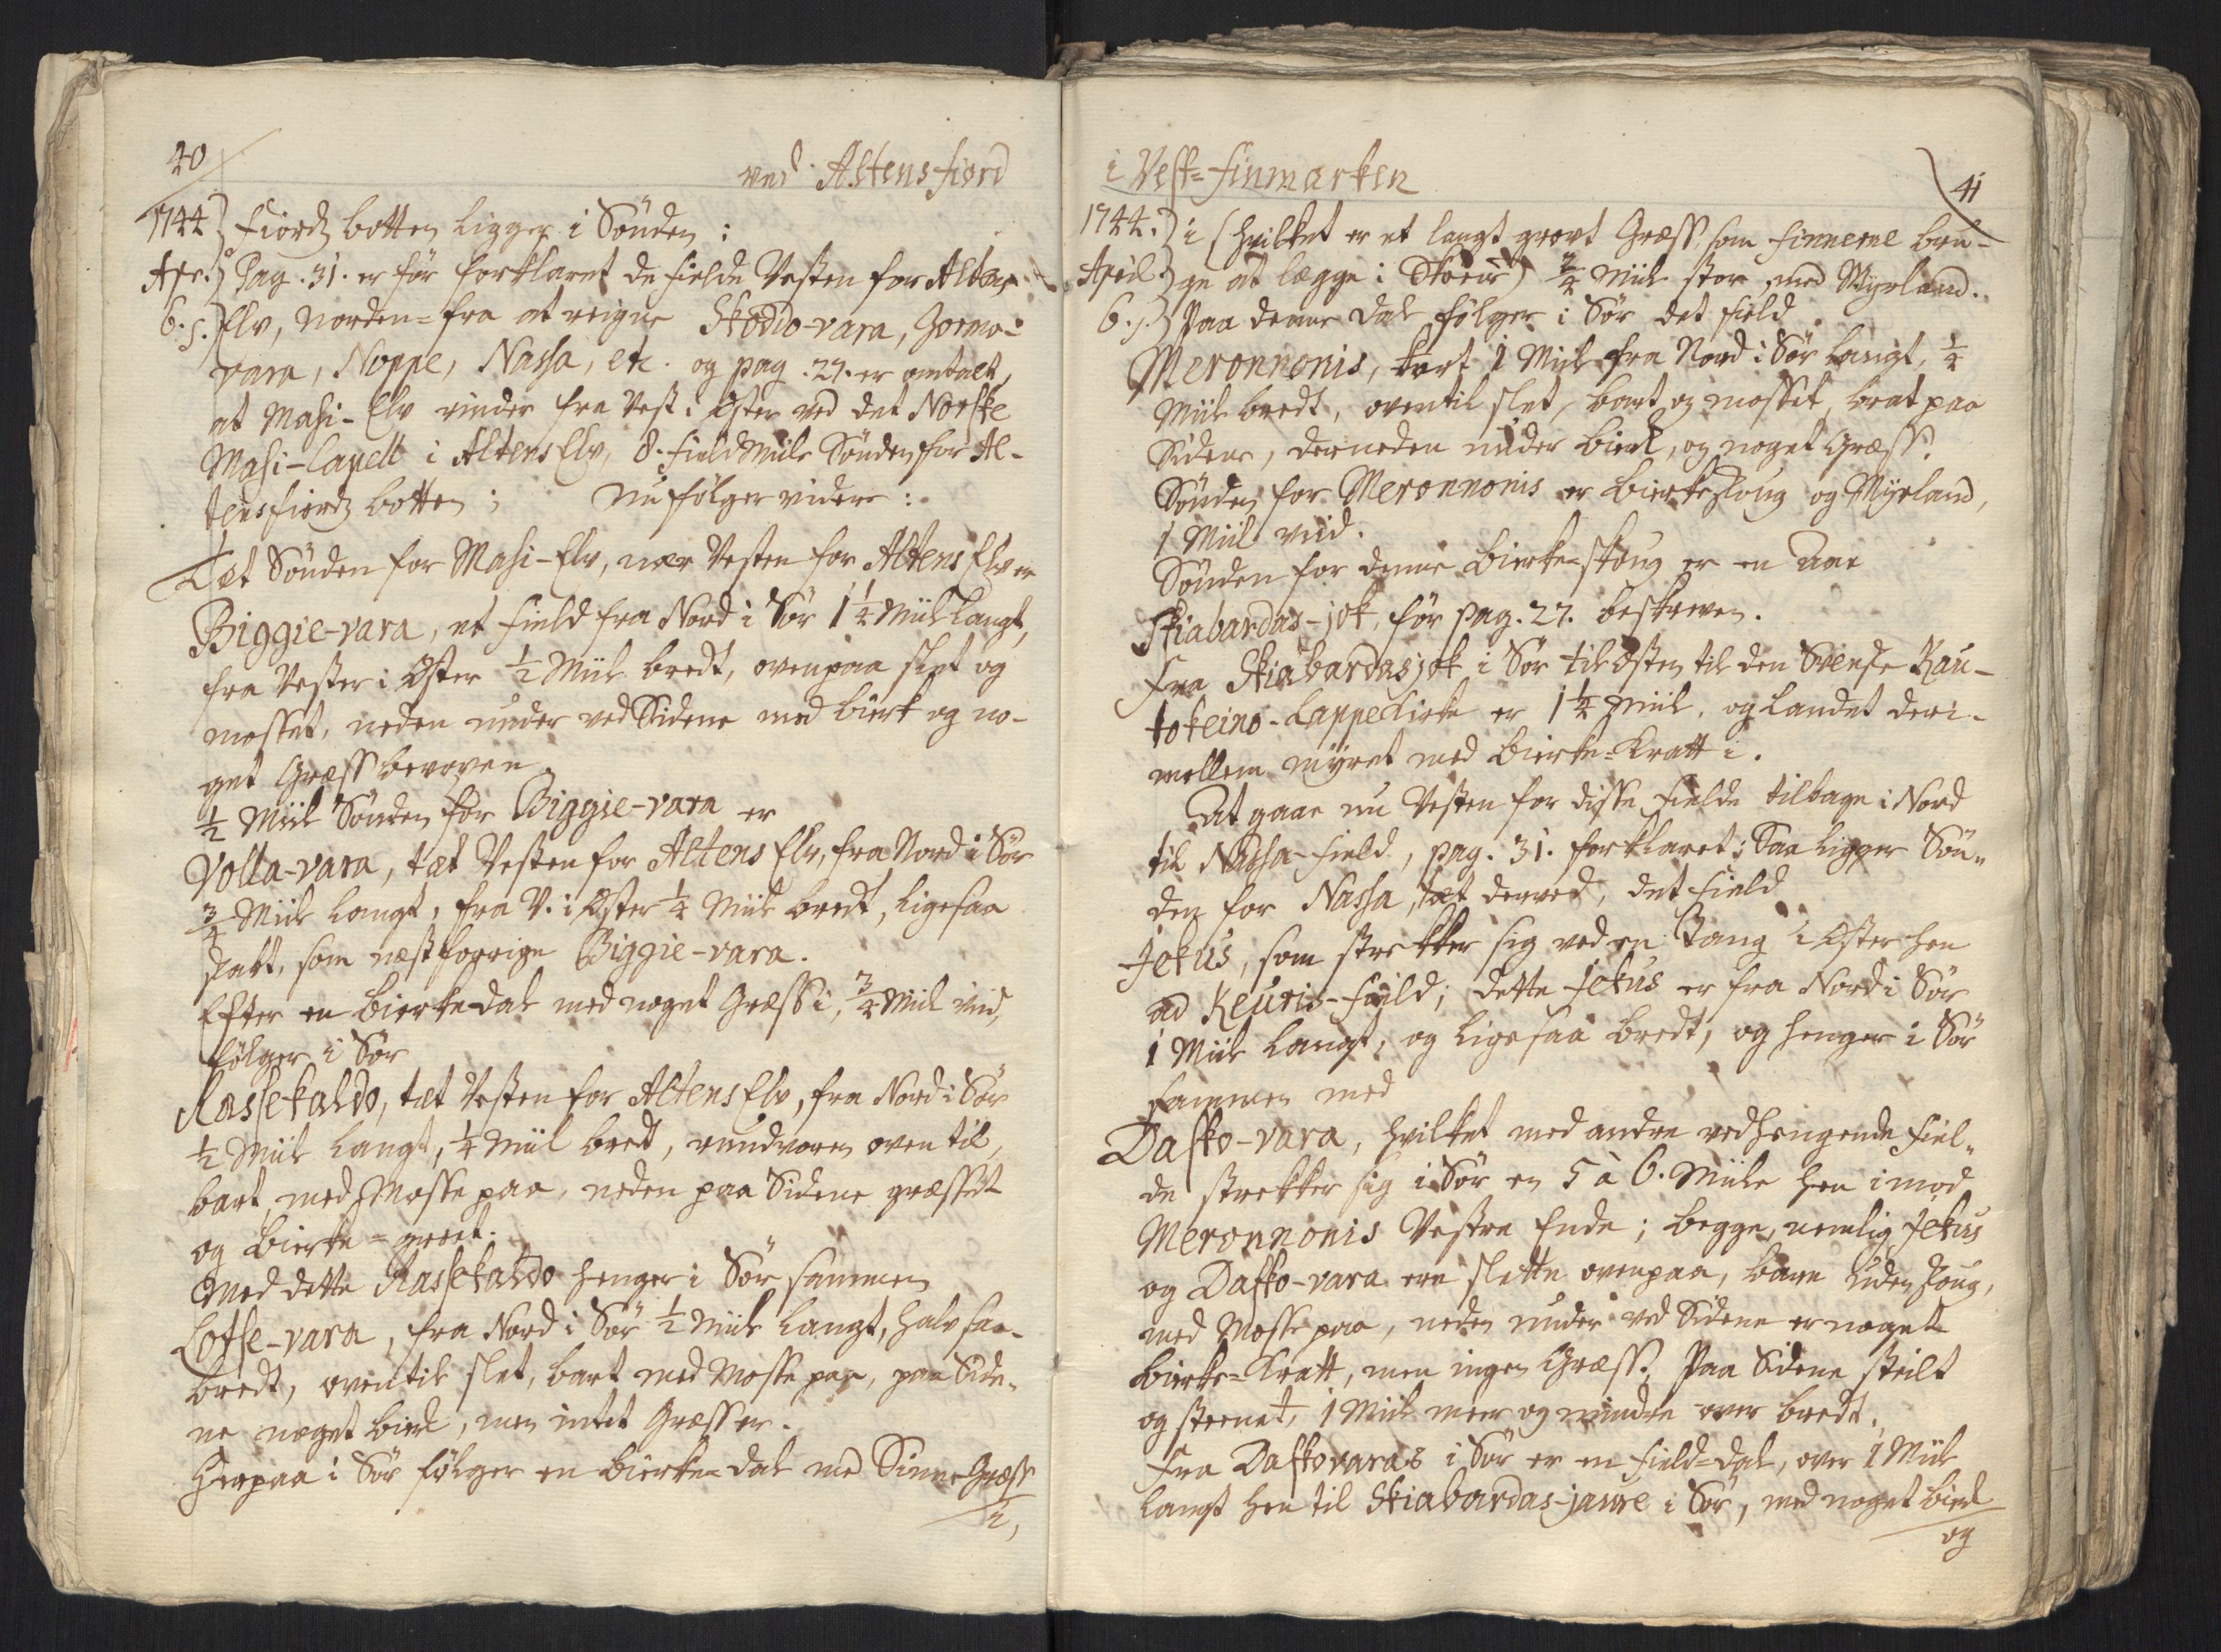 40
ved Altens-fiord
1744
Apr.
6. s.
Fiords botten ligger i Sönden:
Pag. 31. er för forklaret de fielde Vesten for Altens
Elv, Norden-fra at reigne Skodio-vara, Gorvo-
vara, Noppe, Nassa, etc. og pag. 27. er omtalt,
at Masi-Elv rinder fra Vest i Öster ved det Norske
Masi-Capell i Altens Elv, 8. field Miile Sönden for Al-
tensfiords botten; Nu fölger videre:
Tæt Sönden for Masi-Elv, nær Vesten for Altens Elv er
Biggie-vara, et field fra Nord i Sör 1 1/4 Miil Langt,
fra Vester i Öster 1/2 Miil bredt, ovenpaa slet og
mosset, neden under ved Sidene med birk og no-
get Græss bevoxen.
1/2 Miil Sönden for Biggie-vara er
Volla-vara, tæt Vesten for Altens Elv, fra Nord i Sör
3/4 Miil langt, fra V. i Öster 1/4 Miil bredt, ligesaa
skabt, som næst forrige Biggie-vara.
Efter en birke-dal med noget Græss i, 3/4 Miil viid,
fölger i Sör
Rassekaldo, tæt Vesten for Altens Elv, fra Nord i Sör
1/2 Miil langt, 1/4 Miil bredt, rundvoren oven til,
bart, med Mosse paa, neden paa Sidene græsset
og birke-groet.
Med dette Rassekaldo henger i Sör sammen
Lotse-vara, fra Nord i Sör 1/2 Miil langt, halv saa
bredt, oventil slet, bart med Mosse paa, paa Side-
ne noget birk, men intet Græss er.
Herpaa i Sör fölger en birke-dal med Sinne-Græss
i,
i Vest-Finmarken
41
1744.
April.
6. s.
i (hvilket er et langt grovt Græss, som finnerne bru-
ge at lægge i Skoene) 3/4 Miil stor, med Myrland.
Paa denne dal fölger i Sör det field
Meronnonis, kort 1 Miil fra Nord i Sör langt, 1/4
Miil bredt, oventil slet, bart og mosset, brat paa
Sidene, derneden under birk, og noget Græss.
Sönden for Meronnonis er birkeskoug og Myrland,
1 Miil viid.
Sönden for denne birke-skoug er en Aae
Skiabardas-jok, för pag. 27. beskreven.
Fra Skiabardasjok i Sör til Östen til den Svenske Kau-
tokeino-Lappekirke er 1 1/2 Miil, og landet deri-
mellem myret med birke-Kratt i.
At gaae nu Vesten for disse fielde tilbage i Nord
til Nassa-field, pag. 31. forklaret; Saa ligger Sön-
den for Nassa, tæt derved, det field
Jekus, som strekker sig ved en Tang i Öster hen
ad Keuris-field; dette Jekus er fra Nord i Sör
1 Miil langt, og ligesaa bredt, og henger i Sör
sammen med
Dafko-vara, hvilket med andre vedhengende fiel-
de strekker sig i Sör en 5 à 6. Miile hen imod
Meronnonis Vestre Ende; begge, nemlig Jekus
og Dafko-vara ere slette ovenpaa, bare uden skoug,
med Mosse paa, neden under ved Sidene er noget
birke-Kratt, men ingen Græss. Paa Sidene steilt
og steenet, 1 Miil meer og mindre over bredt.
Fra Dafkovaras i Sör er en field-dal, over 1 Miil
langt hen til Skiabardas-jaure i Sör, med noget birk
og